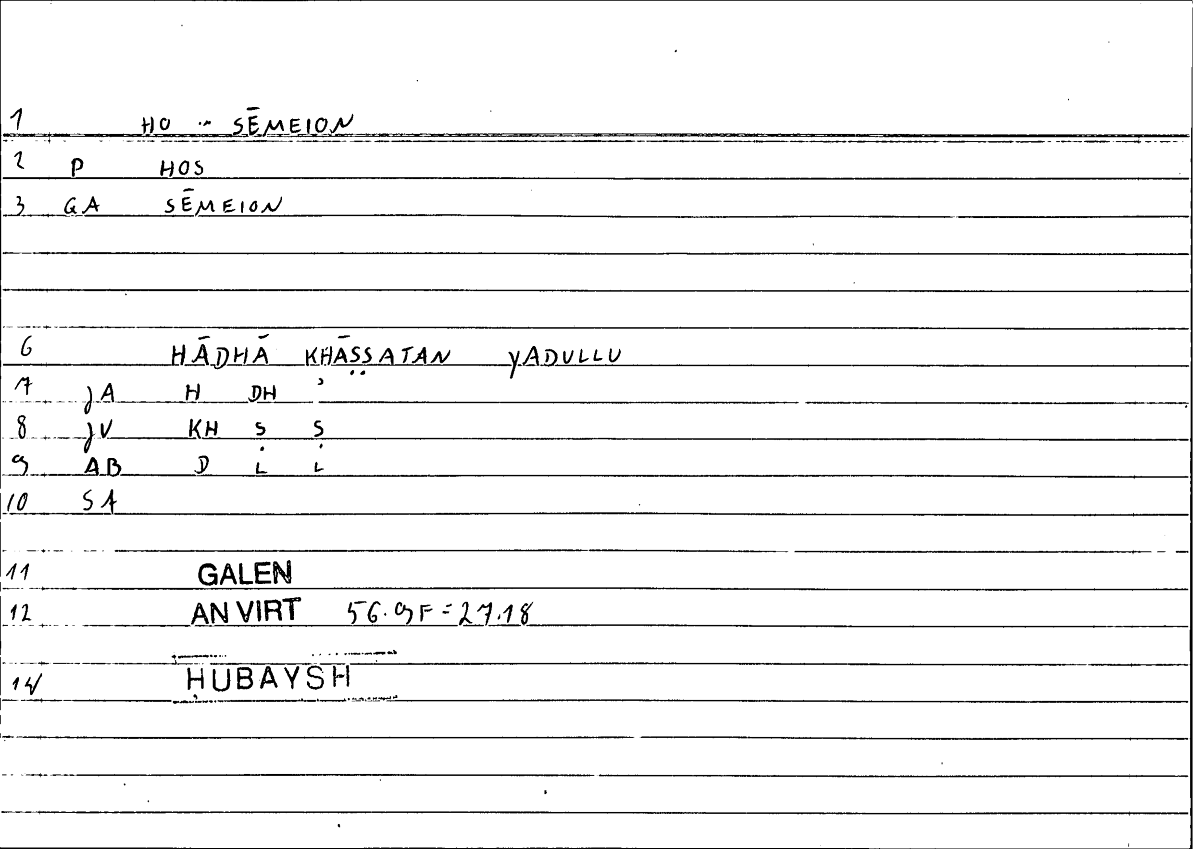 1 HO ·· SĒMEION
2 P HOS
3 GA SĒMEION
6 HĀDHĀ KHĀṢṢATAN YADULLU
7 JA H DH ʾ
8 JV KH Ṣ Ṣ
9 AB D L L
10 SA
11 GALEN
12 AN VIRT 56.9F=27.18
14 ḤUBAYSH